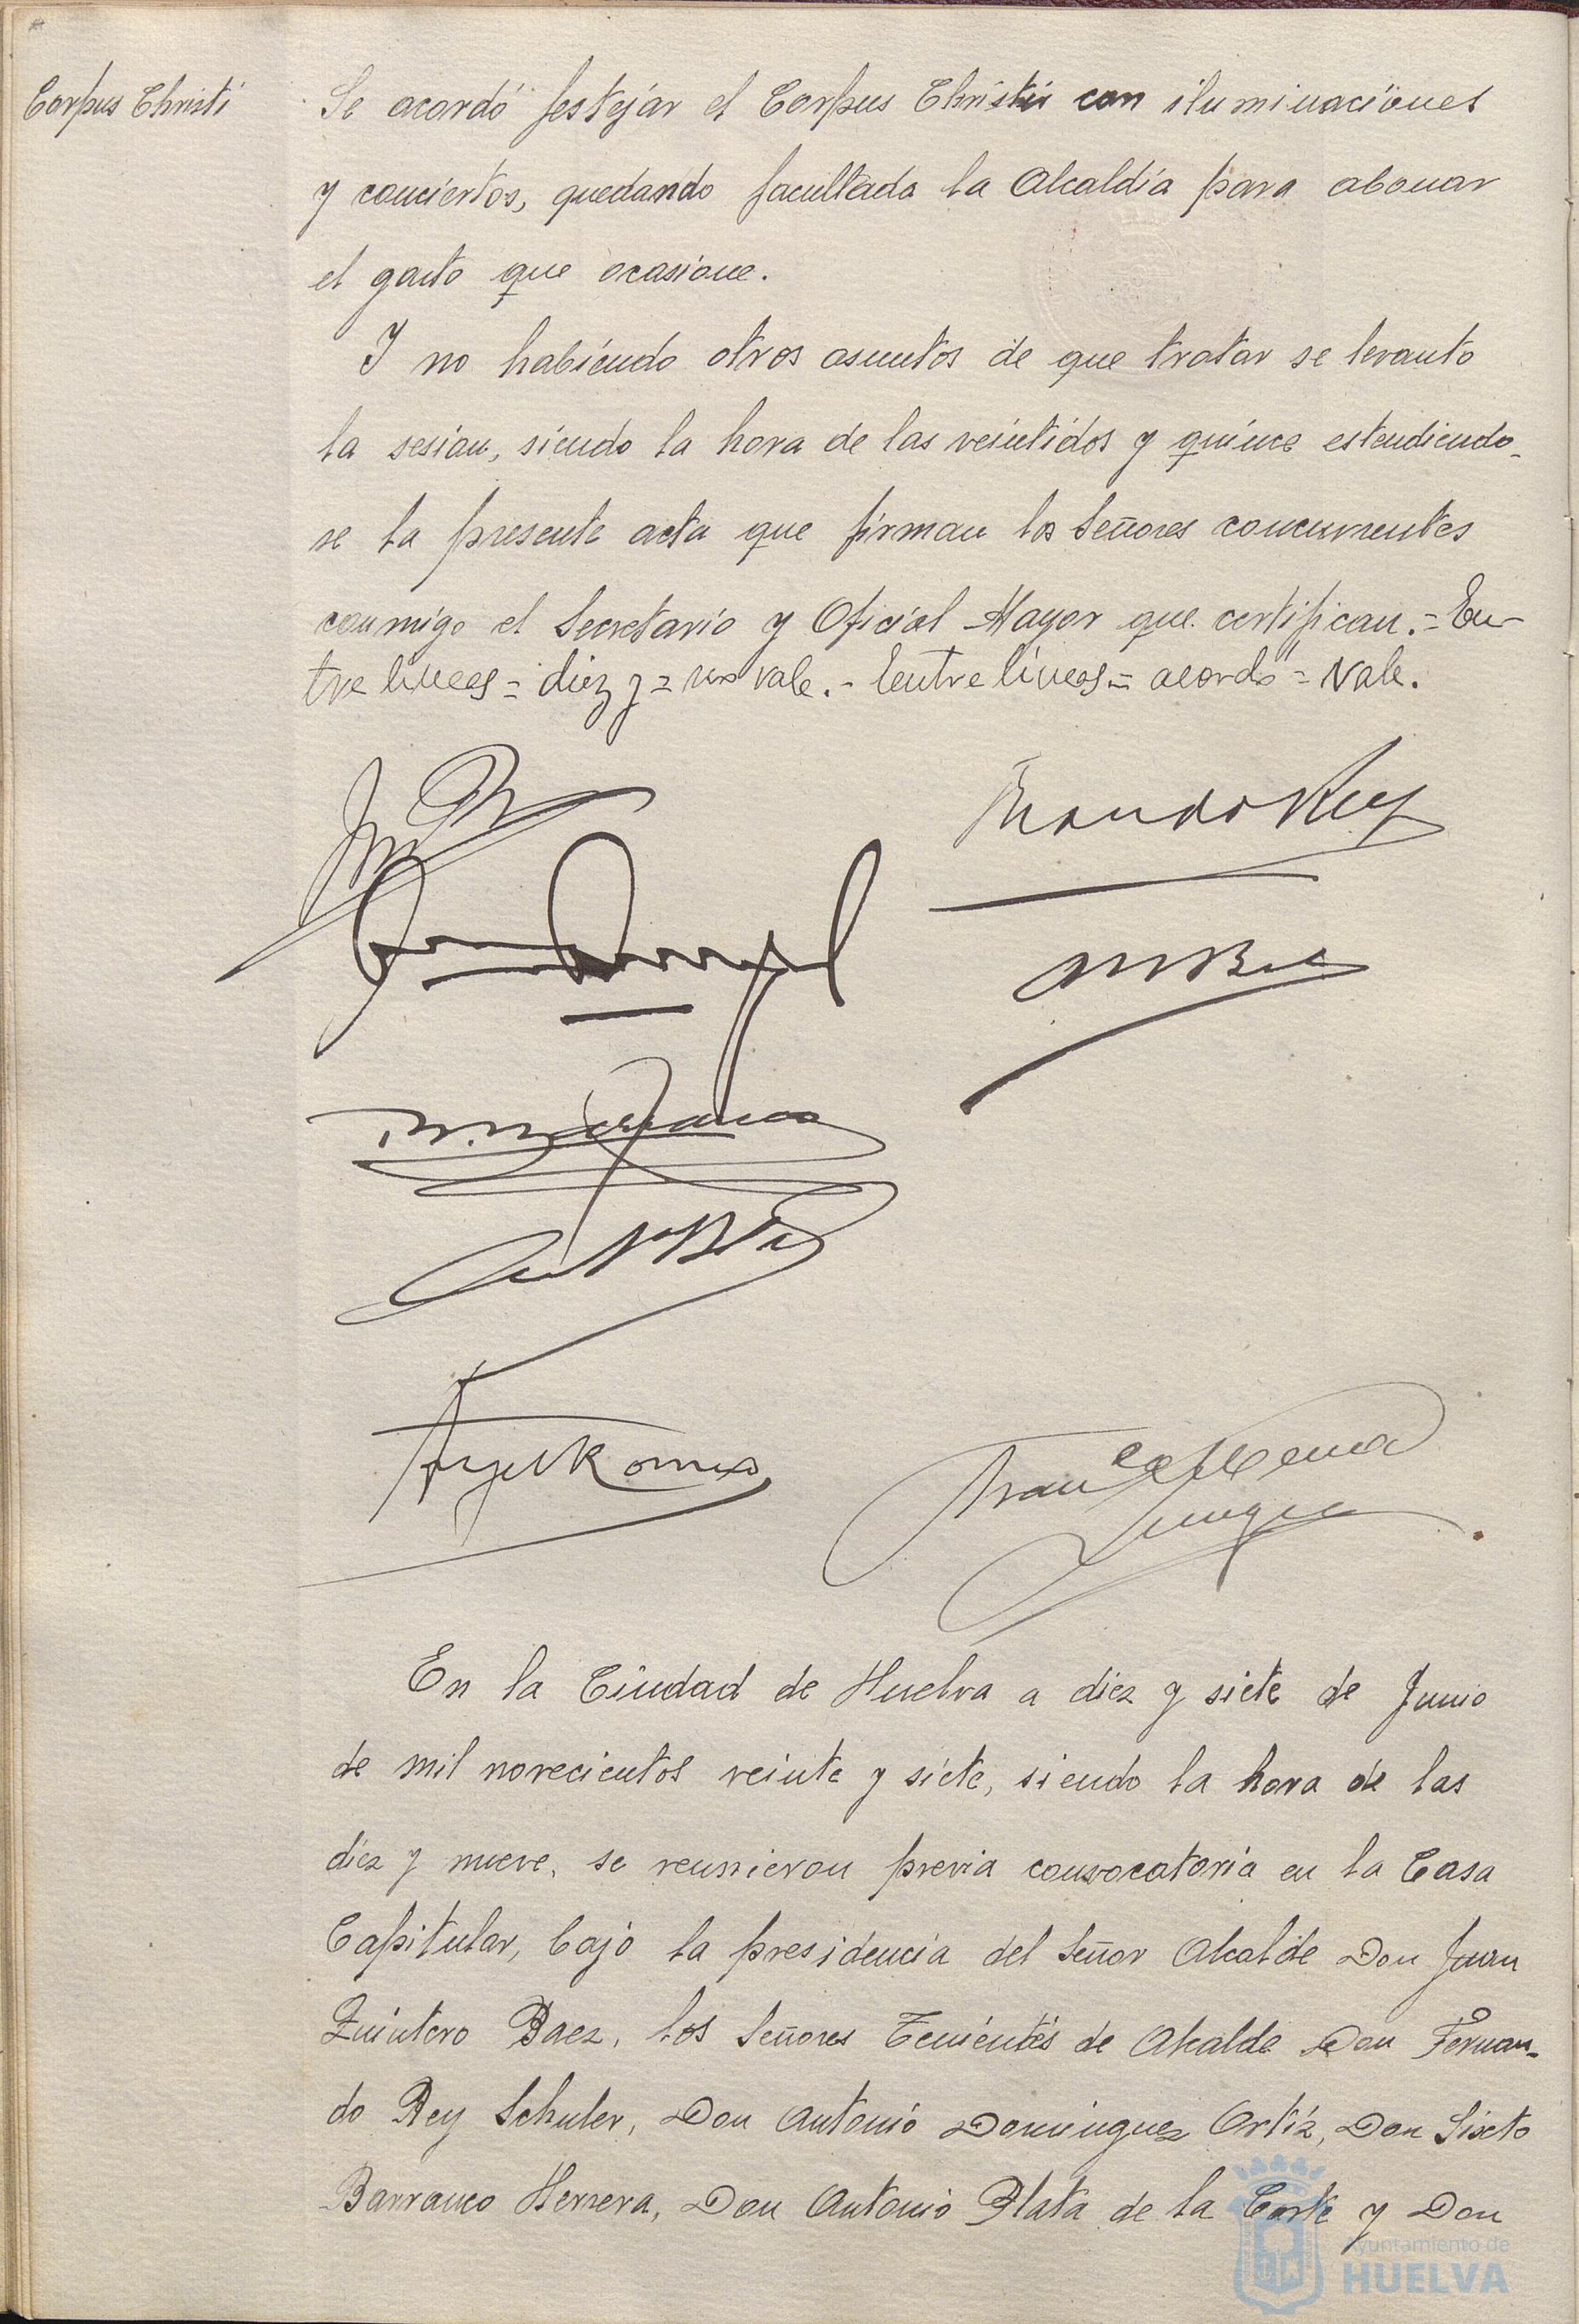 Corpus Christi
Se acordó festejar el Corpus Christi con iluminaciones
y conciertos, quedando facultada la Alcaldía para abonar
el gasto que ocasione.
Y no habiendo otros asuntos de que tratar se levanto
la sesion, siendo la hora de las veintidos y quince estendiendo-
se la presente acta que firman los Señores concurrentes
conmigo el Secretario y Oficial Mayor que certifican.=En-
tre lineas = diez y = no vale.- Eentre líneas = acordó = Vale.
Fernando Rey
En la Ciudad de Huelva a diez y siete de Junio
de mil novecientos veinte y siete, siendo la hora de las
diez y nueve, se reunieron previa convocatoria en la Casa
Capitular, bajo la presidencia del Señor Alcalde Don Juan
Quintero Baez, los Señores Tenientes de Alcalde Don Fernan-
do Rey Schuler, Don Antonio Dominguez Ortiz, Don Sixto
Barranco Herrera, Don Antonio Plata de la Corte y Don
Ayuntamiento de
HUELVA